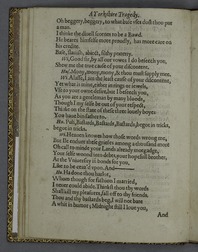 A Yorkshire Tragedy.
Oh beggery, beggery, to what base vses dost thou put
a man.
I thinke the diuell scornes to be a Bawd.
He beares himselfe more proudly, has more care on
his credite.
Base, slauish, abiect, filthy pouerty.
Wi, Good sir, by all our vowes I do beseech you,
Show me the true cause of your discontent.
Hu, Money, money, money, & thou must supply mee.
Wi Alasse, I am the least cause of your discontent,
Yet what is mine, either in rings or iewels,
Vse to your owne desire, but I beseech you,
As you are a gentleman by many bloods,
Though I my selfe be out of your respect,
Thinke on the state of these three louely boyes
You haue bin father to.
Hu. Puh, Bastards, Bastards, Bastards, begot in tricks,
begot in tricks.
wi, Heauen knowes how those words wrong me,
But
these griefes among a thousand more
Oh call to minde your Lands already morgadgde,
Your selfe wound into debts, your hopefull brother,
At the Vniuersity in bonds for you,
Like to be ceaz'd vpon. And
Hu. Ha done thou harlot,
Whom though for fashion I married,
I neuer could abide. Thinkst thou thy words
Shall kill my pleasures, fall off to thy freends
Thou and thy bastards beg, I will not bate
A whit in humor, Midnight still I loue you,
And